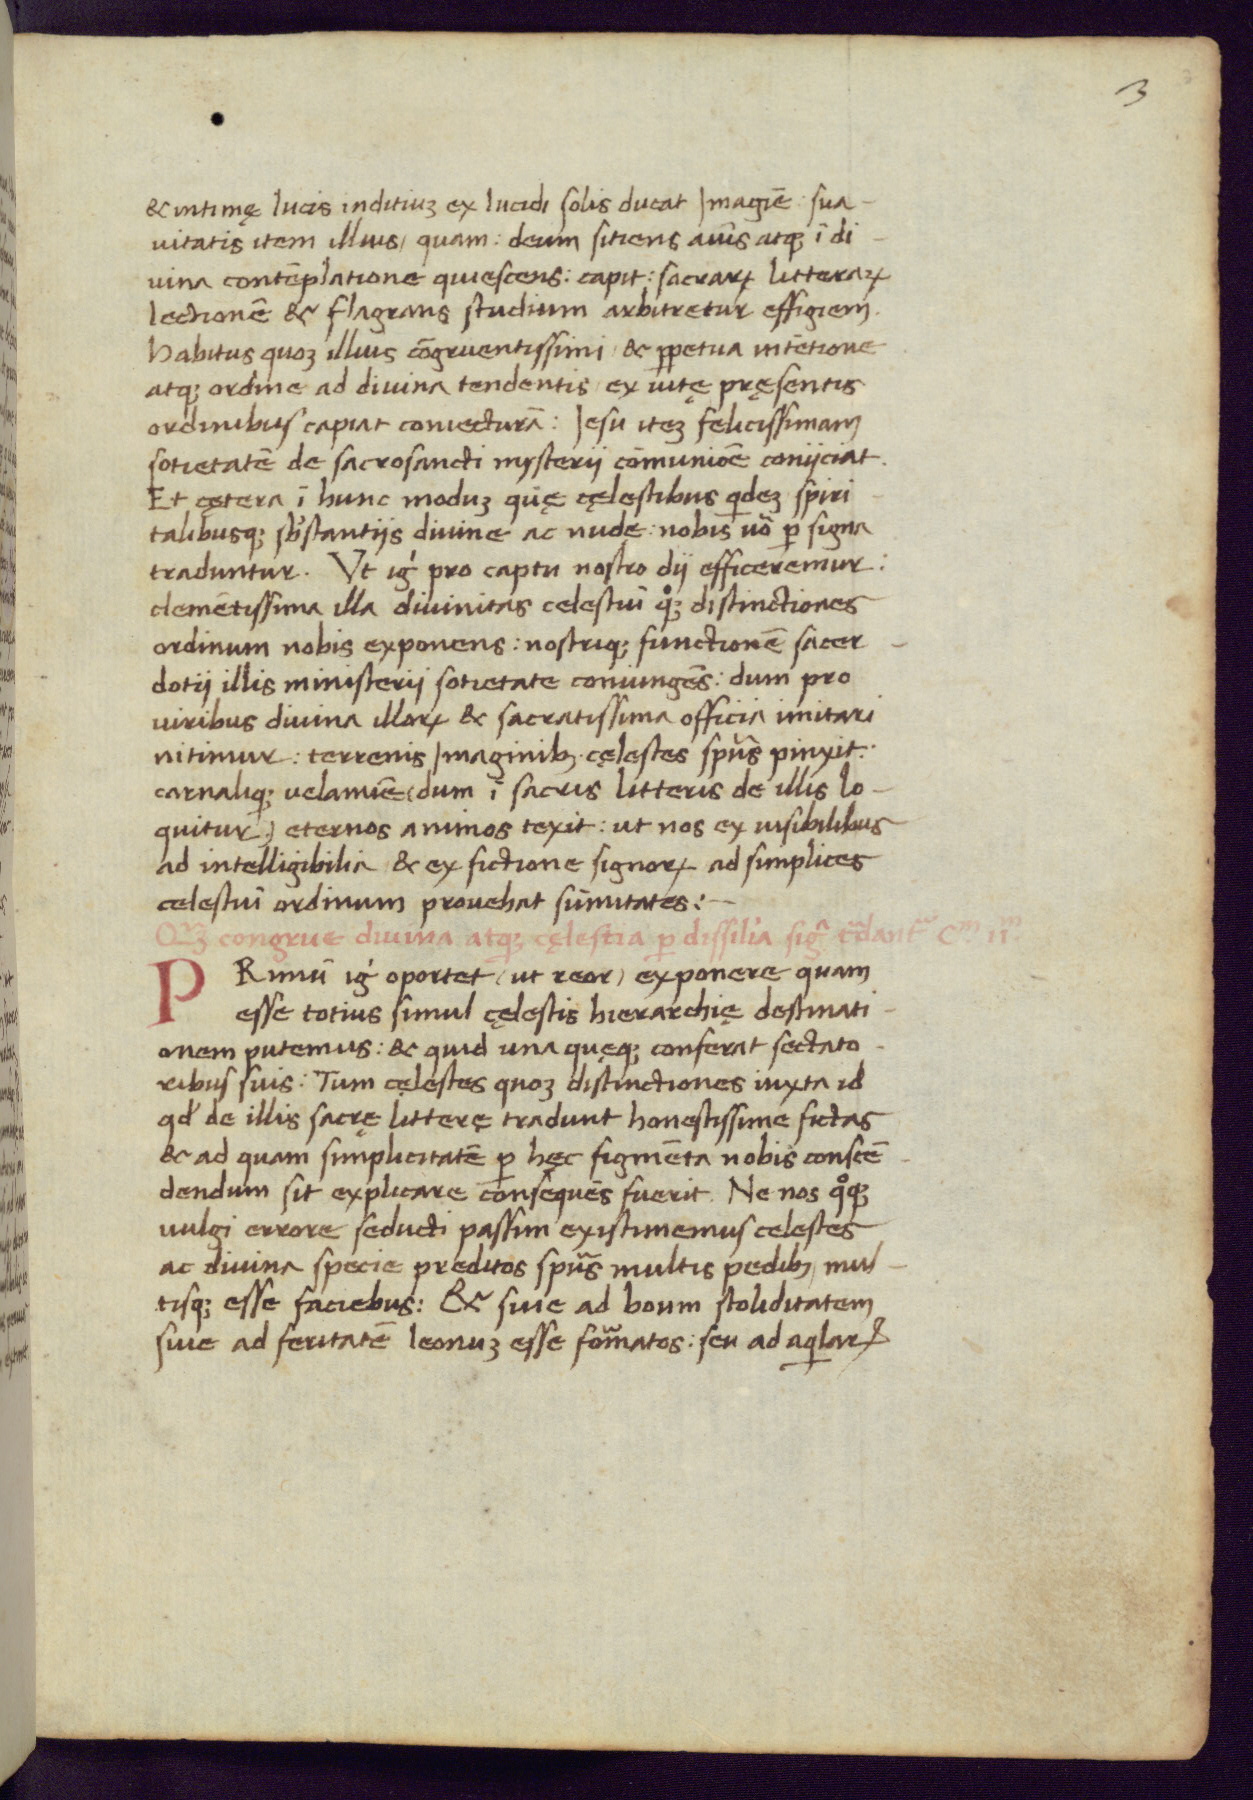 3
& intimę lucis inditiuʒ ex lucidi solis ducat Imagiē: sua-
uitatis item illius, quam: deum sitiens auīs atqꝫ ī di-
uina contēplatione quiescens: capit: sacraꝝ litteraꝝ
lectionē & flagrans studium arbitretur effigiem.
habitus quoʒ illius cōgruentissimi, & ꝑpetua intētione
atqꝫ ordine ad diuina tendentis, ex uitę pręsentis
ordinibus capiat coniecturā: Iesu iteʒ felicissimam
sotietatē de sacrosancti mysterii cōmuniōe coniiciat.
Et cętera ī hunc moduʒ quę cęlestibus qdeʒ spiri-
talibusqꝫ sb'stantijs diuine ac nude: nobis uō ꝑ signa
traduntur. Vt ig' pro captu nostro dij efficeremur:
clemētissima illa diuinitas celestiū qͦꝫ distinctiones
ordinum nobis exponens: nostriqꝫ functionē sacer-
dotij illis ministerij sotietate coniungēs: dum pro
uiribus diuina illoꝝ & sacratissima officia imitari
nitimur: terrenis Imaginibꝫ cęlestes spūs pinxit:
carnaliqꝫ uelamīe (dum ī sacris litteris de illis lo-
quitur) eternos animos texit: ut nos ex uisibilibus
ad intelligibilia & ex fictione signoꝝ ad simplices
celestiū ordinum prouehat sūmitates:-
Qʒ congrue diuina atqꝫ cęlestia ꝑ dissilia sig̃ trādant᷑ Cᵐ iiᵐ
PRimū ig' oportet (ut reor) exponere quam
esse totius simul cęlestis hierarchię destinati-
onem putemus: & quid una quęqꝫ conferat sectato-
ribus suis: Tum cęlestes quoʒ distinctiones iuxta id
qd' de illis sacrę litterę tradunt honestissime fictas
& ad quam simplicitatē ꝑ hęc figmēta nobis conscē-
dendum sit explicare consequēs fuerit. Ne nos qͦqꝫ
uulgi errore seducti passim existimemus celestes
ac diuina specie preditos spūs multis pedibꝫ, mul-
tisqꝫ esse faciebus: & siue ad boum stoliditatem
siue ad feritatē leonuʒ esse formatos: seu ad aqlaꝝ